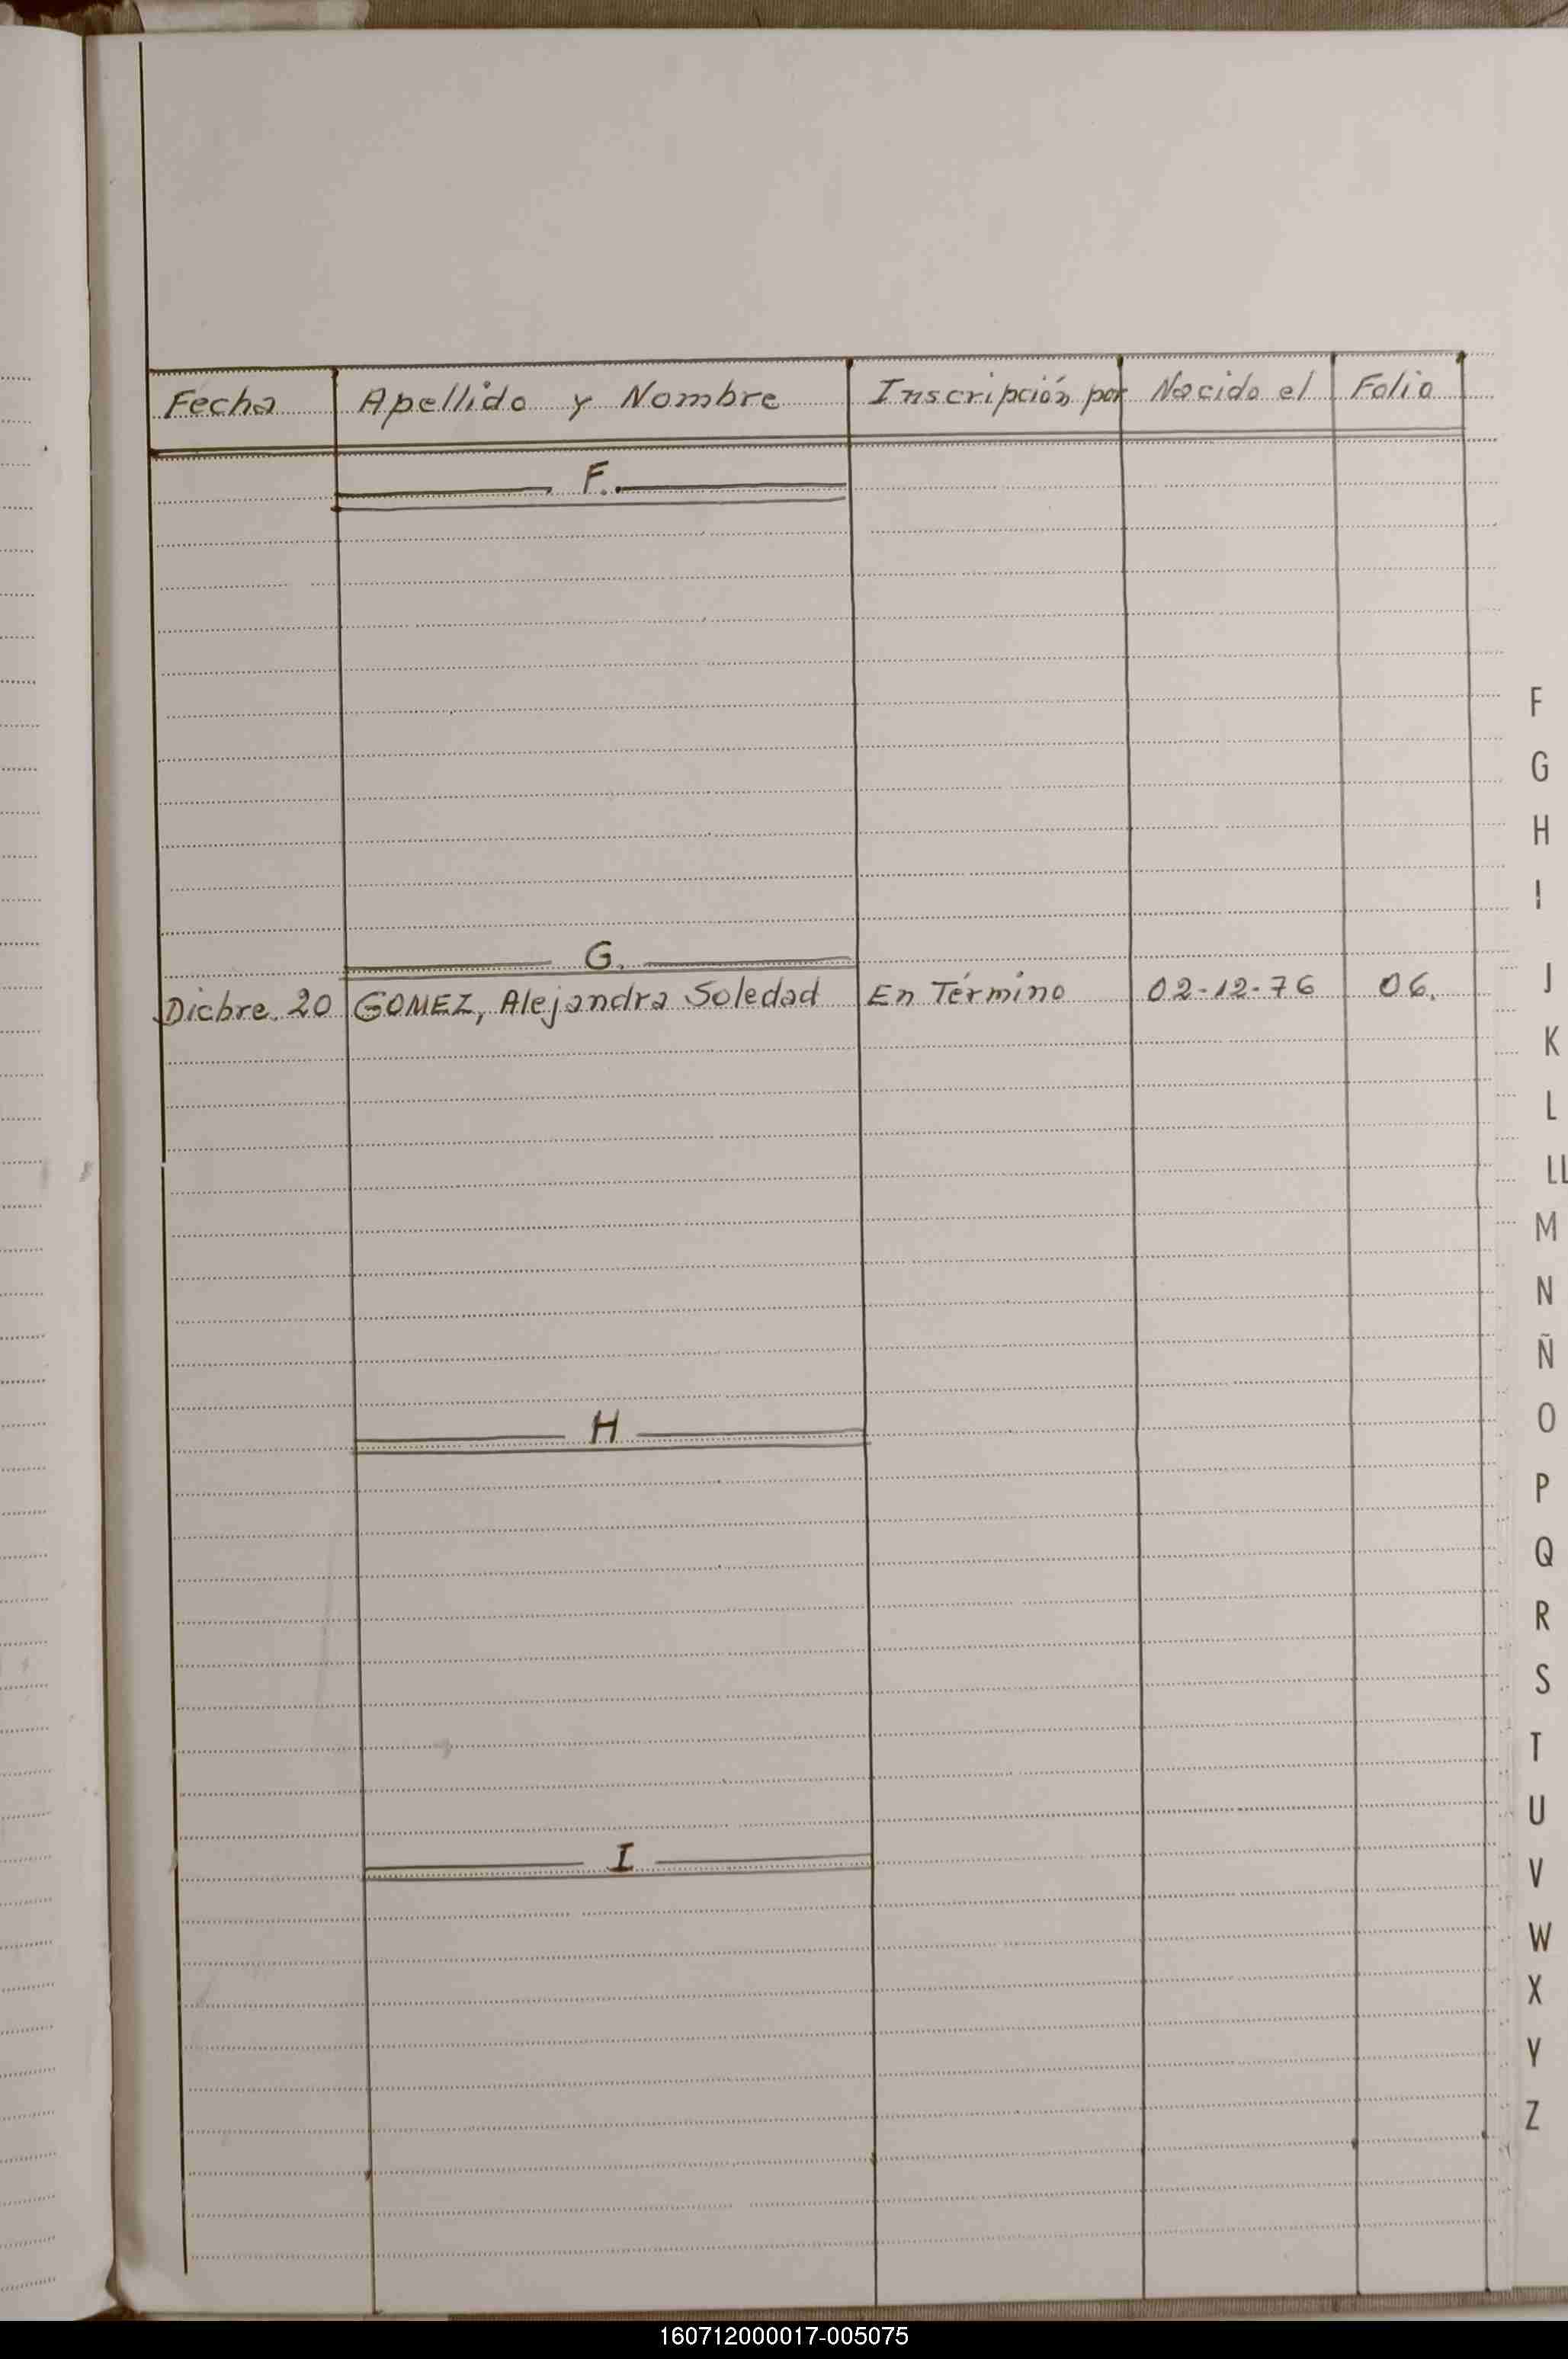 Fecha Apellido y Nombre Inscripción por Nacido el Folio
F.
G.
Dicbre. 20 GOMEZ, Alejandra Soledad En Término 02-12-76 06.
H
I
F
G
H
I
J
K
L
LL
M
N
Ñ
O
P
Q
R
S
T
U
V
W
X
Y
Z
160712000017-005075